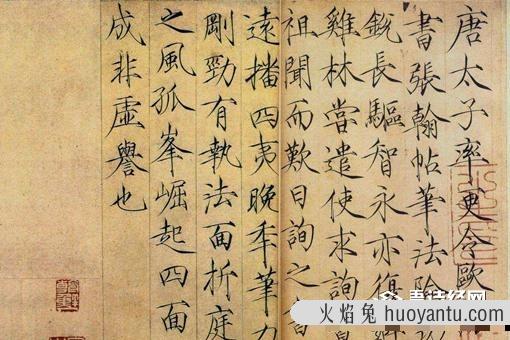 唐太子率更令歐
書張翰帖筆法險
銳長驅智永亦復
雞林嘗遣使求詢
祖聞而歎曰詢之書
遠播四夷晚秊筆力
剛勁有執法面折庭
之風孤峯崛起四面
成非虛譽也
火焰兔 huoyantu.com